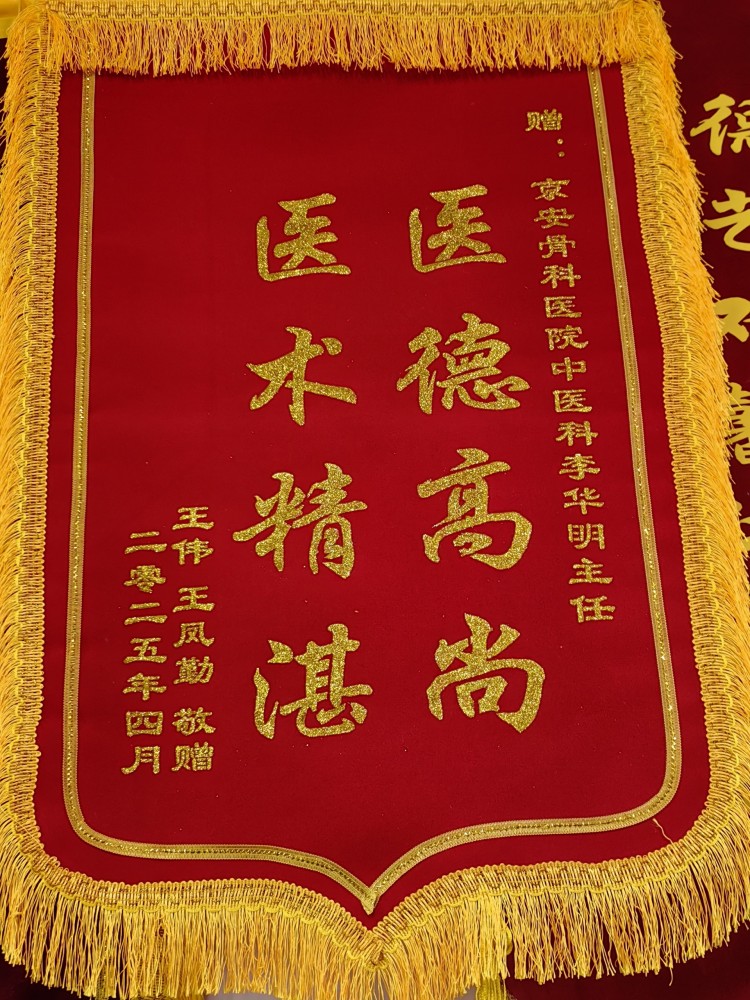 赠：京安骨科医院中医科李华明主任
医德高尚
医术精湛
王伟 王凤勤 敬赠
二零二五年四月
德艺双馨